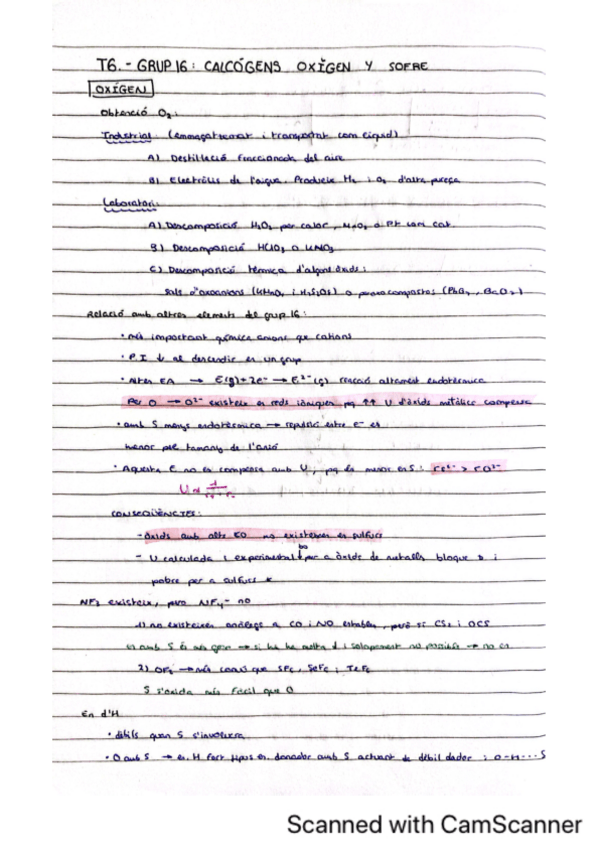 T6.- GRUP 16: CALCÓGENS OXÌGEN Y SOFRE
OXÍGEN
Obtenció O2:
Industrial (emmagatzemat i transportat com líquid)
A) Destil·lació fraccionada del aire
B) Electròlis de l'aigua. Produeix H2 i O2 d'alta puresa
Laboratori:
A) Descomposició H2O2 per calor, MnO2 o Pt com cat.
B) Descomposició HClO3 o
C) Descomposició tèrmica d'algons òxids:
Sals d'oxoanions (KMnO4 i K2S2O8) o peroxocompostos (PbO2, BaO2)
Relació amb altres elements del grup 16:
• més important química anions que cations
• P.I ↓ al descendir en un grup
• Altes EA → E(g) + 2e- → E2-(g) reacció altament endotèrmica
Per O → O2- existeix en reds iòniques pq ↑↑ U d'òxids metàl·lics compensa
• amb S menys endotèrmica → repulsió entre e- es
menor pel tamany de l'anió
• Aquesta E no es compensa amb U, pq és menor en S:
U α
CONSEQÜÈNCIES:
- òxids amb alts EO no existeixen en sulfurs
- U calculada i experimental bo per a òxids de metalls bloque s i
pobre per a sulfurs
existeix, pero no
1) no existeixen anàlegs a CO i NO estables, però sí CS2 i OCS
amb S és més gran → si hi ha molta d i solapament no possible → no es
2) → més comú que SF6, SeF6 i TeF6
S s'oxida més fàcil que O
En d'H
• dèbils quan S s'involucra
• O amb S → en. H fort tipus en donador amb S actuant de dèbil dador : O-H···S
Scanned with CamScanner